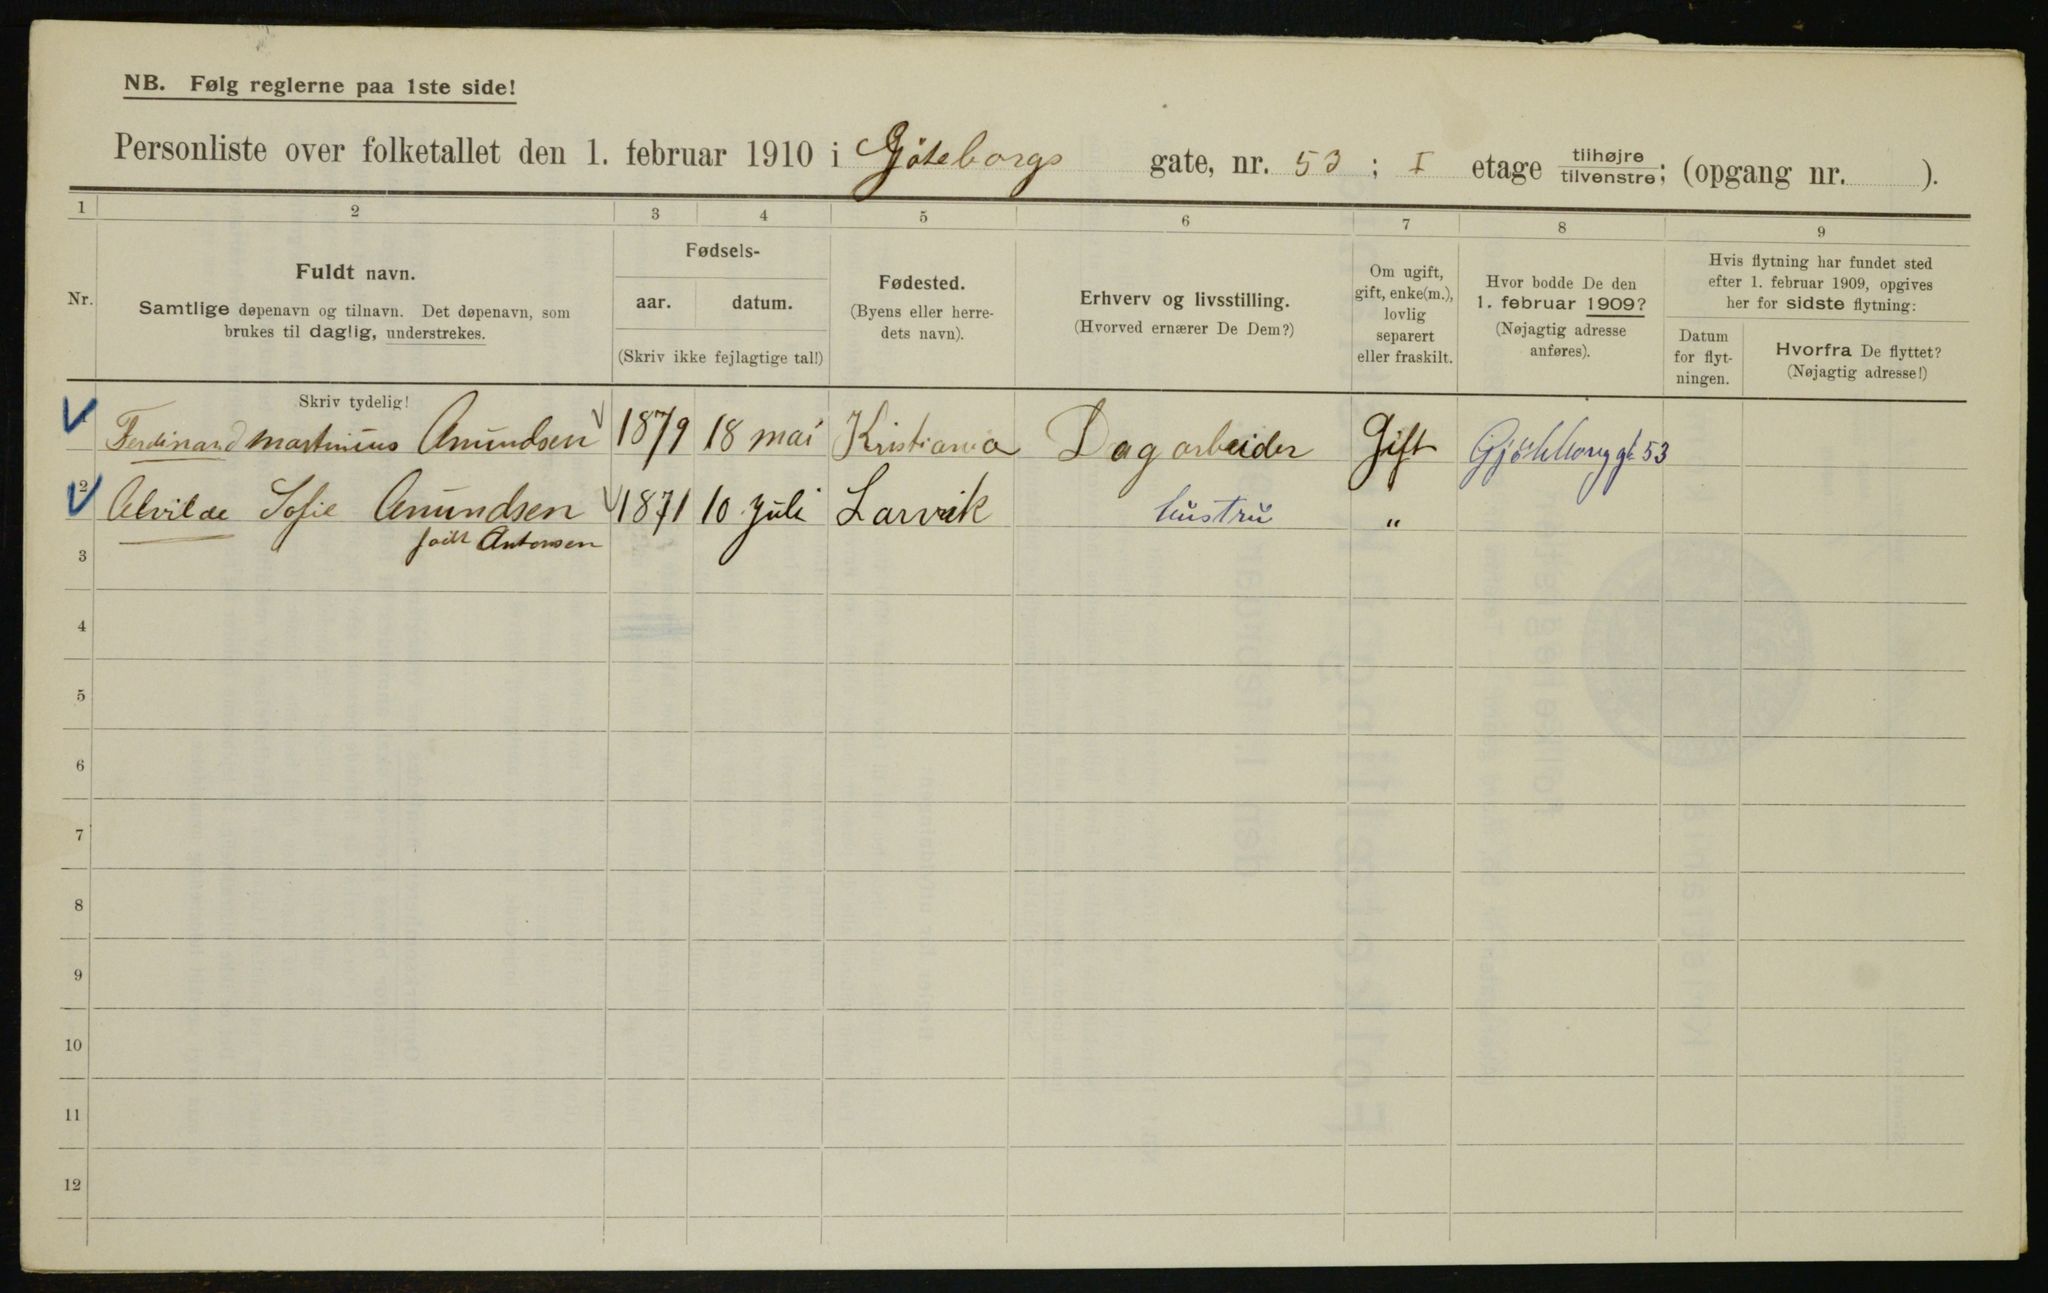 NB. Følg reglerne paa 1ste side!
Personliste over folketallet den 1. februar 1910 i Gøteborgs gate, nr. 53 ; I etage tilhøjre tilvenstre; (opgang nr. ).
1 2 3 4 5 6 7 8 9
Nr.
Fuldt navn.
Samtlige døpenavn og tilnavn. Det døpenavn, som
brukes til daglig, understrekes.
Skriv tydelig!
Fødsels-
aar. datum.
(Skriv ikke fejlagtige tal!)
Fødested.
(Byens eller herre-
dets navn).
Erhverv og livsstilling.
(Hvorved ernærer De Dem?)
Om ugift,
gift, enke(m.),
lovlig
separert
eller fraskilt.
Hvor bodde De den
1. februar 1909?
(Nøjagtig adresse
anføres).
Hvis flytning har fundet sted
efter 1. februar 1909, opgives
her for sidste flytning:
Datum
for flyt-
ningen.
Hvorfra De flyttet?
(Nøjagtig adresse!)
Ferdinand Martinius Amundsen 1879 18 mai Kristiania Dagarbeider Gift 53
2 Alvilde Sofie Amundsen 1871 10 Juli Larvik hustru "
født Antonsen
3
4
5
6
7
8
9
10
11
12